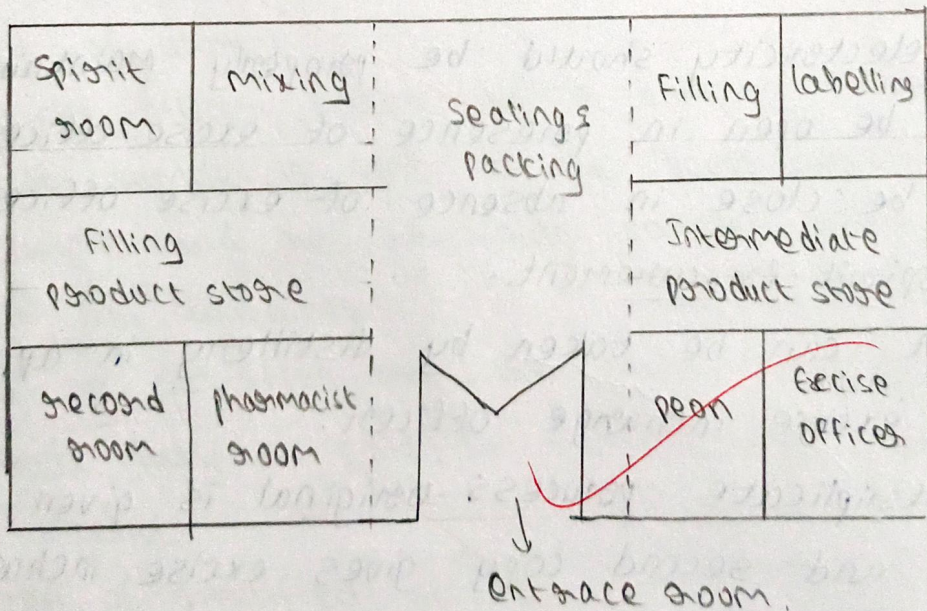 Spirit
room
Mixing
Sealing &
packing
Filling
labelling
Filling
product store
Intermediate
product store
record
room
pharmacist
room
peon
Excise
officer
entrace room.